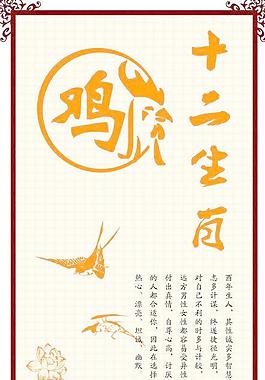 十二生肖
鸡
酉年生人，其性诚实多智慧
志多计谋，终遂捷径光明，
对自己不利的时多与计较，
远方男性女性都容易受异性
付出真情，自尊心高，计厌
的人都合适你，因此在选择
热心、漂亮、坦诚、幽默